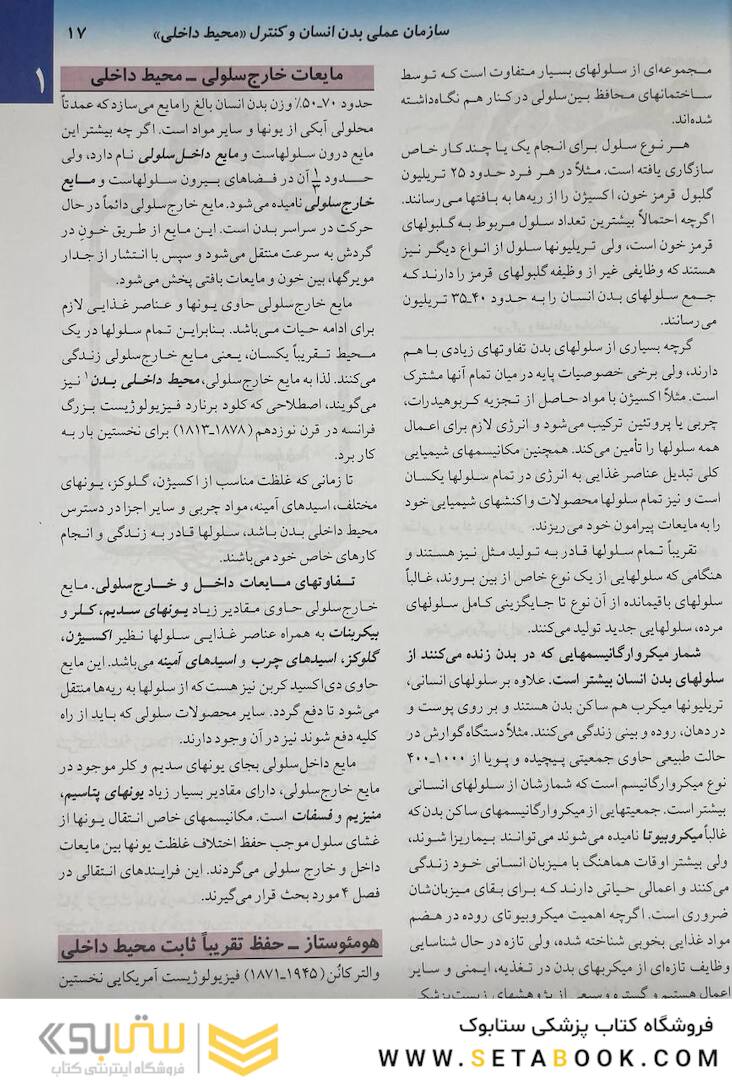 سازمان عملی بدن انسان و کنترل «محیط داخلی» ۱۷
۱
مجموعه‌ای از سلولهای بسیار متفاوت است که توسط
ساختمانهای محافظ بین‌سلولی در کنار هم نگاه‌داشته
شده‌اند.
هر نوع سلول برای انجام یک یا چند کار خاص
سازگاری یافته است. مثلاً در هر فرد حدود ۲۵ تریلیون
گلبول قرمز خون، اکسیژن را از ریه‌ها به بافتها می‌رسانند.
اگرچه احتمالاً بیشترین تعداد سلول مربوط به گلبولهای
قرمز خون است، ولی تریلیونها سلول از انواع دیگر نیز
هستند که وظایفی غیر از وظیفه گلبولهای قرمز را دارند که
جمع سلولهای بدن انسان را به حدود ۴۰-۳۵ تریلیون
می‌رسانند.
گرچه بسیاری از سلولهای بدن تفاوتهای زیادی با هم
دارند، ولی برخی خصوصیات پایه در میان تمام آنها مشترک
است. مثلاً اکسیژن با مواد حاصل از تجزیه کربوهیدرات،
چربی یا پروتئین ترکیب می‌شود و انرژی لازم برای اعمال
همه سلولها را تأمین می‌کند. همچنین مکانیسمهای شیمیایی
کلی تبدیل عناصر غذایی به انرژی در تمام سلولها یکسان
است و نیز تمام سلولها محصولات واکنشهای شیمیایی خود
را به مایعات پیرامون خود می‌ریزند.
تقریباً تمام سلولها قادر به تولید مثل نیز هستند و
هنگامی که سلولهایی از یک نوع خاص از بین بروند، غالباً
سلولهای باقیمانده از آن نوع تا جایگزینی کامل سلولهای
مرده، سلولهایی جدید تولید می‌کنند.
شمار میکروارگانیسمهایی که در بدن زنده می‌کنند از
سلولهای بدن انسان بیشتر است. علاوه بر سلولهای انسانی،
تریلیونها میکرب هم ساکن بدن هستند و بر روی پوست و
در دهان، روده و بینی زندگی می‌کنند. مثلاً دستگاه گوارش در
حالت طبیعی حاوی جمعیتی پیچیده و پویا از ۱۰۰۰-۴۰۰
نوع میکروارگانیسم است که شمارشان از سلولهای انسانی
بیشتر است. جمعیتهایی از میکروارگانیسمهای ساکن بدن که
غالباً میکروبیوتا نامیده می‌شوند می‌توانند بیماریزا شوند،
ولی بیشتر اوقات هماهنگ با میزبان انسانی خود زندگی
می‌کنند و اعمالی حیاتی دارند که برای بقای میزبان‌شان
ضروری است. اگرچه اهمیت میکروبیوتای روده در هضم
مواد غذایی بخوبی شناخته شده، ولی تازه در حال شناسایی
وظایف تازه‌ای از میکربهای بدن در تغذیه، ایمنی و سایر
اعمال هستیم و گستره وسیعی از پژوهشهای زیست‌پزشکی
مایعات خارج‌سلولی ـ محیط داخلی
حدود ۷۰-۵۰٪ وزن بدن انسان بالغ را مایع می‌سازد که عمدتاً
محلولی آبکی از یونها و سایر مواد است. اگر چه بیشتر این
مایع درون سلولهاست و مایع داخل‌سلولی نام دارد، ولی
حدود ۱/۳ آن در فضاهای بیرون سلولهاست و مایع
خارج‌سلولی نامیده می‌شود. مایع خارج‌سلولی دائماً در حال
حرکت در سراسر بدن است. این مایع از طریق خون در
گردش به سرعت منتقل می‌شود و سپس با انتشار از جدار
مویرگها، بین خون و مایعات بافتی پخش می‌شود.
مایع خارج‌سلولی حاوی یونها و عناصر غذایی لازم
برای ادامه حیات می‌باشد. بنابراین تمام سلولها در یک
محیط تقریباً یکسان، یعنی مایع خارج‌سلولی زندگی
می‌کنند. لذا به مایع خارج‌سلولی، محیط داخلی بدن۱ نیز
می‌گویند، اصطلاحی که کلود برنارد فیزیولوژیست بزرگ
فرانسه در قرن نوزدهم (۱۸۷۸-۱۸۱۳) برای نخستین بار به
کار برد.
تا زمانی که غلظت مناسب از اکسیژن، گلوکز، یونهای
مختلف، اسیدهای آمینه، مواد چربی و سایر اجزا در دسترس
محیط داخلی بدن باشد، سلولها قادر به زندگی و انجام
کارهای خاص خود می‌باشند.
تفاوتهای مایعات داخل و خارج‌سلولی. مایع
خارج‌سلولی حاوی مقادیر زیاد یونهای سدیم، کلر و
بیکربنات به همراه عناصر غذایی سلولها نظیر اکسیژن،
گلوکز، اسیدهای چرب و اسیدهای آمینه می‌باشد. این مایع
حاوی دی‌اکسید کربن نیز هست که از سلولها به ریه‌ها منتقل
می‌شود تا دفع گردد. سایر محصولات سلولی که باید از راه
کلیه دفع شوند نیز در آن وجود دارند.
مایع داخل‌سلولی بجای یونهای سدیم و کلر موجود در
مایع خارج‌سلولی، دارای مقادیر بسیار زیاد یونهای پتاسیم،
منیزیم و فسفات است. مکانیسمهای خاص انتقال یونها از
غشای سلول موجب حفظ اختلاف غلظت یونها بین مایعات
داخل و خارج سلولی می‌گردند. این فرایندهای انتقالی در
فصل ۴ مورد بحث قرار می‌گیرند.
هومئوستاز ـ حفظ تقریباً ثابت محیط داخلی
والتر کانُن (۱۹۴۵-۱۸۷۱) فیزیولوژیست آمریکایی نخستین
فروشگاه کتاب پزشکی ستابوک
WWW.SETABOOK.COM
ستابوک
فروشگاه اینترنتی کتاب